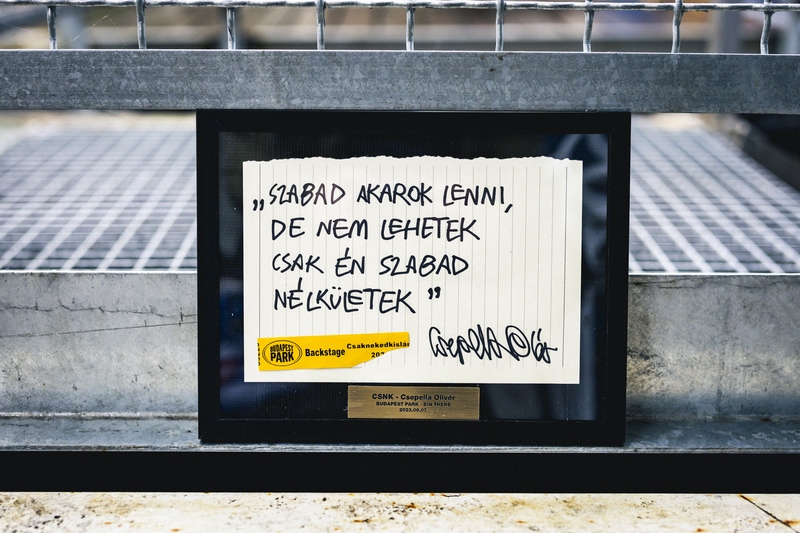 „SZABAD AKAROK LENNI,
DE NEM LEHETEK
CSAK ÉN SZABAD
NÉLKÜLETEK”
BUDAPEST
PARK
Backstage
Csaknekedkislán
Csepella Olivér
CSNK - Csepella Olivér
BUDAPEST PARK - BIN THERE
2023.09.07.